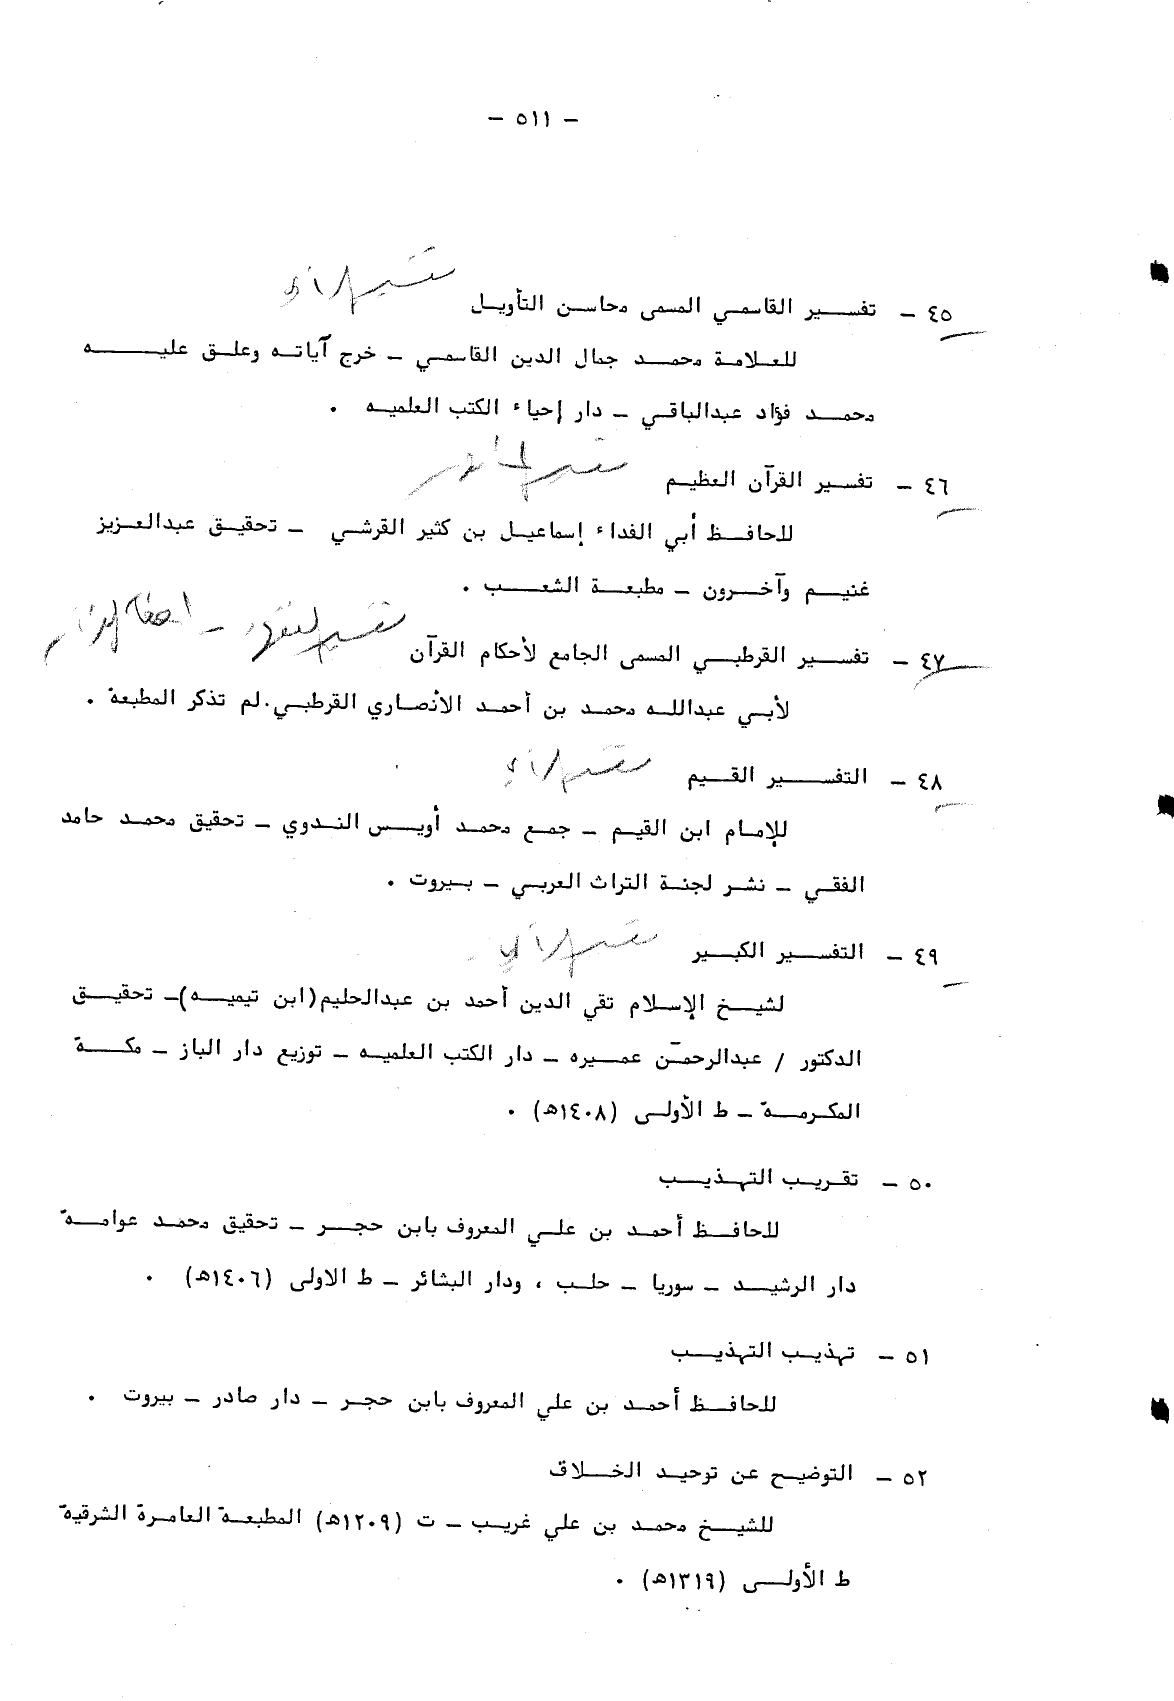 - ٥١١ -
٤٥ - تفسير القاسمي المسمى محاسن التأويل
للعلامة محمد جمال الدين القاسمي - خرج آياته وعلق عليه
محمد فؤاد عبدالباقي - دار إحياء الكتب العلميه .
٤٦ - تفسير القرآن العظيم
للحافظ أبي الفداء إسماعيل بن كثير القرشي - تحقيق عبدالعزيز
غنيم وآخرون - مطبعة الشعب .
٤٧ - تفسير القرطبي المسمى الجامع لأحكام القرآن
لأبي عبدالله محمد بن أحمد الأنصاري القرطبي. لم تذكر المطبعة .
٤٨ - التفسير القيم
للإمام ابن القيم - جمع محمد أويس الندوي - تحقيق محمد حامد
الفقي - نشر لجنة التراث العربي - بيروت .
٤٩ - التفسير الكبير
لشيخ الإسلام تقي الدين أحمد بن عبدالحليم (ابن تيميه) - تحقيق
الدكتور / عبدالرحمن عميره - دار الكتب العلميه - توزيع دار الباز - مكة
المكرمة - ط الأولى (١٤٠٨هـ) .
٥٠ - تقريب التهذيب
للحافظ أحمد بن علي المعروف بابن حجر - تحقيق محمد عوامة
دار الرشيد - سوريا - حلب ، ودار البشائر - ط الاولى (١٤٠٦هـ) .
٥١ - تهذيب التهذيب
للحافظ أحمد بن علي المعروف بابن حجر - دار صادر - بيروت .
٥٢ - التوضيح عن توحيد الخلاق
للشيخ محمد بن علي غريب - ت (١٢٠٩هـ) المطبعة العامرة الشرقية
ط الأولى (١٣١٩هـ) .